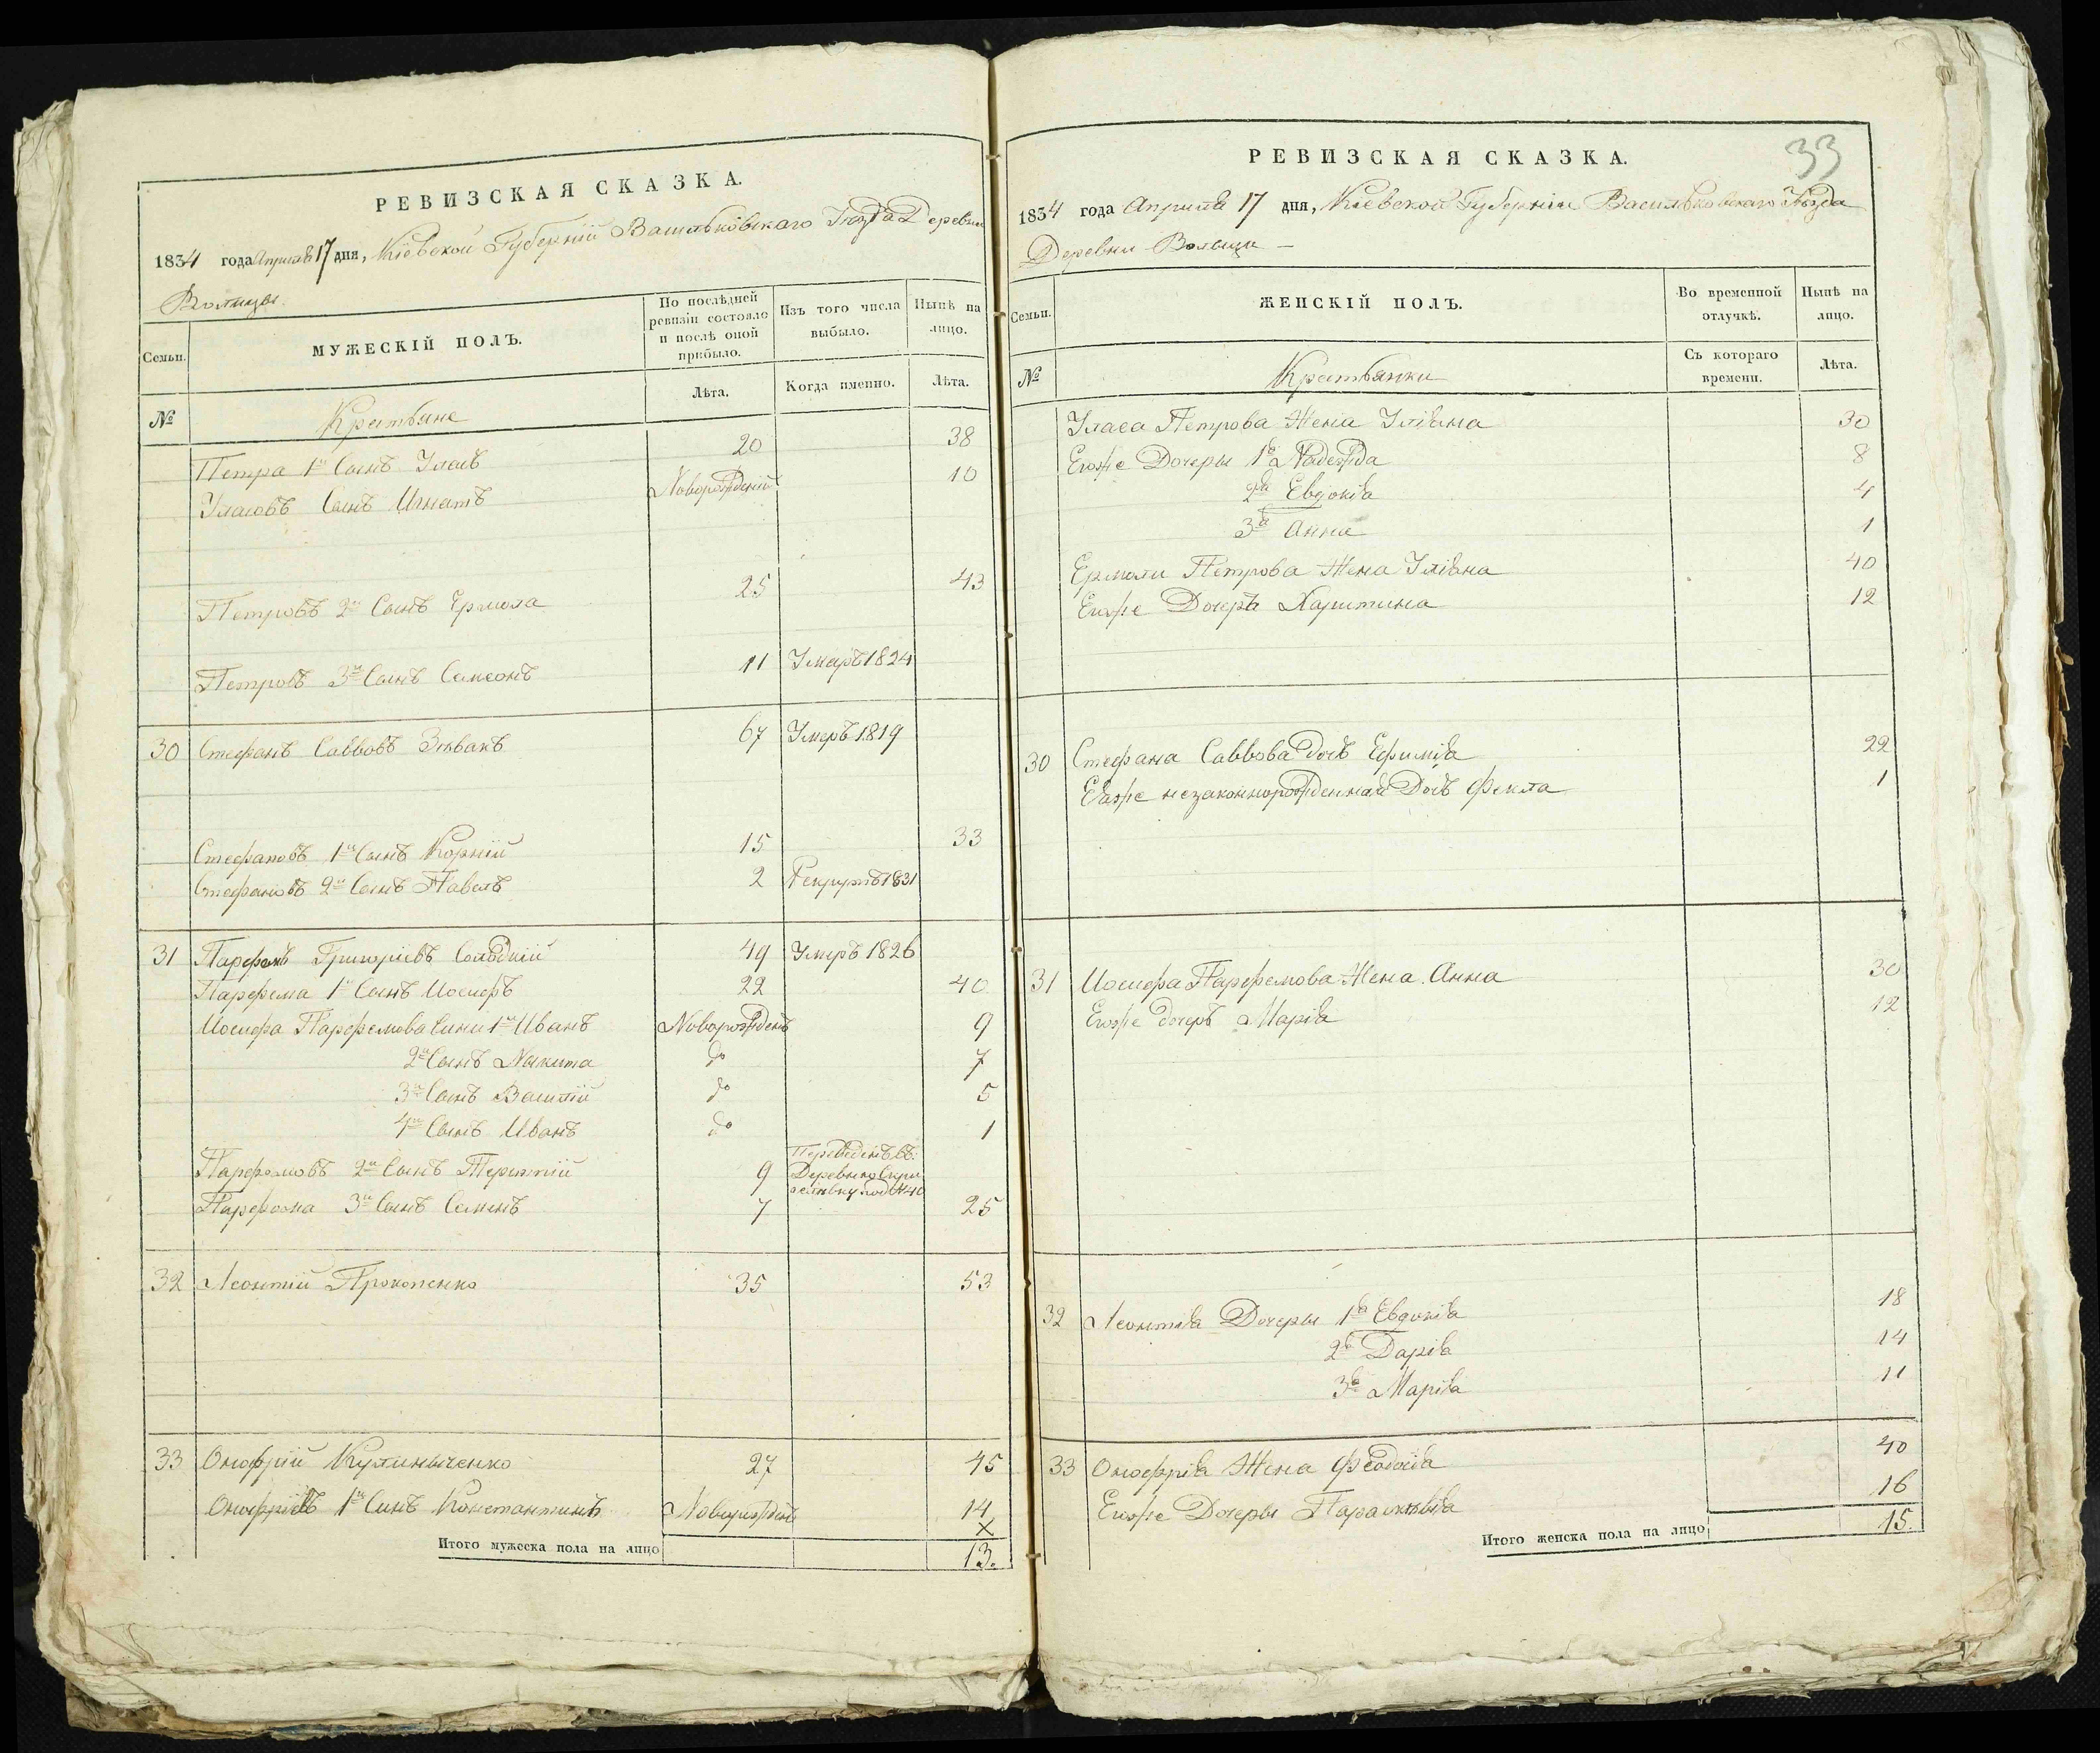 РЕВИЗСКАЯ СКАЗКА.
1834 года Апреля 17 дня, Кіевской Губерніи Васильковскаго Уезда Деревни
Волицы
Семьи.
МУЖЕСКІЙ ПОЛЪ.
По послѣдней ревизіи состояло и послѣ оной прибыло.
Изъ того числа выбыло.
Нынѣ на лицо.
№
Крестьяне
Лѣта.
Когда именно.
Лѣта.
Петра 1й Сынъ Уласъ 20 38
Уласовъ Сынъ Игнатъ Новорожденій 10
Петровъ 2й Сынъ Ермола 25 43
Петровъ 3й Сынъ Самсонъ 11 Умеръ 1824
30 Стефанъ Саввовъ 67 Умеръ 1819
Стефановъ 1й Сынъ Корній 15 33
Стефановъ 2й Сынъ Павелъ 2 Рекрутъ 1831
31 Парфенъ Григоріевъ 49 Умеръ 1826
Парфема 1й Сынъ Иосифъ 22 40
Иосифа Парфемова Сини 1й Иванъ Новорожденъ 9
2й Сынъ Никита до 7
3й Сынъ Василій до 5
4й Сынъ Иванъ до 1
Парфемовъ 2й Сынъ Терентій 9 Переведенъ въ Деревню под №40
Парфема 3й Сынъ Семенъ 7 25
32 Леонтій Прокопенко 35 53
33 Онофрій Кулиныченко 27 45
Онофріевъ 1й Синъ Константинъ Новорожден 14
Х
Итого мужеска пола на лицо 13.
33
РЕВИЗСКАЯ СКАЗКА.
1834 года Апреля 17 дня, Кіевской Губерніи Васильковскаго Уезда
Деревни Волици —
Семьи.
ЖЕНСКІЙ ПОЛЪ.
Во временной отлучкѣ.
Нынѣ на лицо.
№
Крестьянки
Съ котораго времени.
Лѣта.
Уласа Петрова Жена Уліяна 30
Егоже Дочеры 1я Надежда 8
2я Евдокія 4
3я Анна 1
Ермоли Петрова Жена Уліяна 40
Егоже Дочерь Харитина 12
30 Стефана Саввова Дочъ Ефимія 22
Еяже незаконнорожденная Дочъ Фекла 1
31 Иосифа Парфемова Жена Анна 30
Егоже дочеръ Марія 12
32 Леонтія Дочеры 1я Евдокія 18
2я Дарія 14
3я Марія 11
33 Онофрія Жена Феодосія 40
Егоже Дочеры Параскевія 16
Итого женска пола на лицо 15.